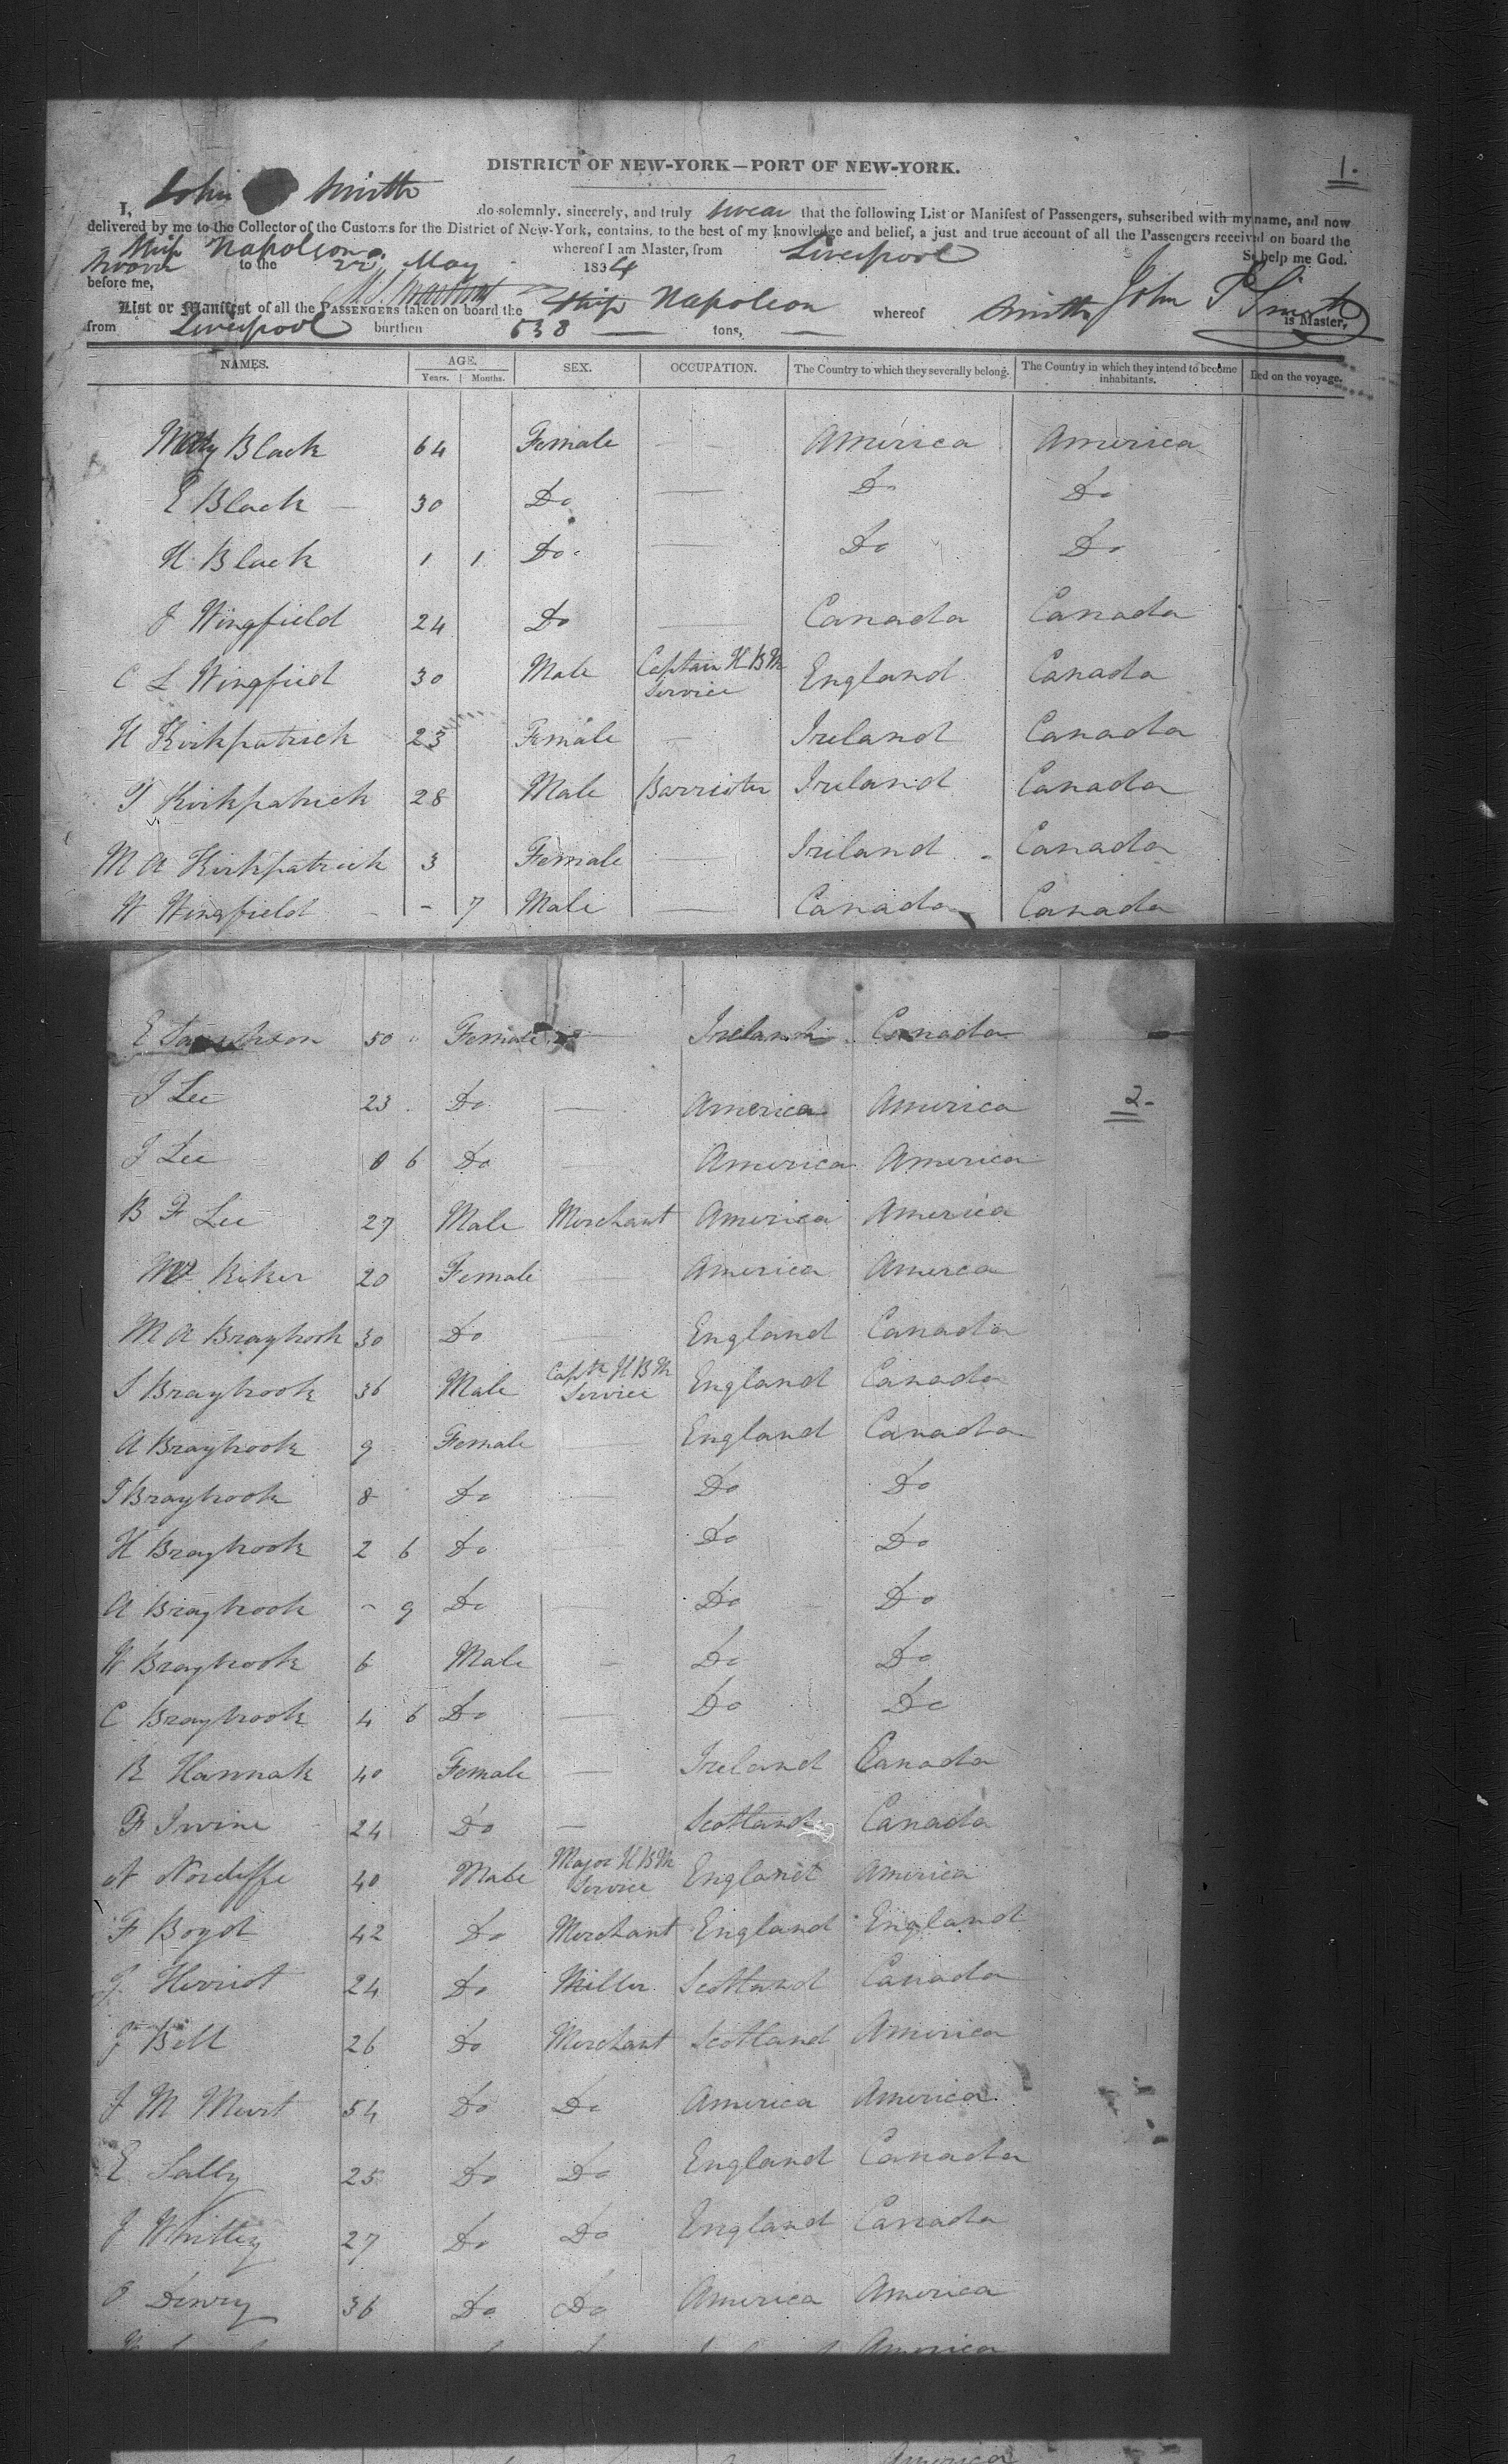 1.
DISTRICT OF NEW-YORK—PORT OF NEW-YORK.
I, John Smith do solemnly, sincerely, and truly swear that the following List or Manifest of Passengers, subscribed with my name, and now
delivered by me to the Collector of the Customs for the District of New-York, contains, to the best of my knowledge and belief, a just and true account of all the Passengers received on board the
Ship Napoleon whereof I am Master, from Liverpool So help me God.
Sworn to the 22 May 1834
before me,
John P Smith
List or Manifest of all the Passengers taken on board the Ship Napoleon whereof Smith is Master,
from Liverpool burthen 538 tons,
NAMES. AGE. SEX. OCCUPATION. The Country to which they severally belong. The Country in which they intend to become inhabitants. Died on the voyage.
Years. Months.
Mary Black 64 Female — America America
E Black — 30 Do — Do Do
H Black 1 1 Do — Do Do
J Wingfield 24 Do — Canada Canada
C L Wingfied 30 Male Captain H B M Service England Canada
H Kirkpatrick 23 Female — Ireland Canada
T Kirkpatrick 28 Male Barrister Ireland Canada
M A Kirkpatrick 3 Female — Ireland Canada
W Wingfield - 7 Male — Canada Canada
E 50 " Female — Ireland Canada
2.
J Lee 23 Do — America America
J Lee 0 6 Do — America America
B F Lee 27 Male Merchant America America
Riker 20 Female — America Amerca
M A Braybrook 30 Do — England Canada
S Braybrook 36 Male Captn H B M Service England Canada
A Braybrook 9 Female England Canada
J Braybrook 8 Do — Do Do
H Braybrook 2 6 Do — Do Do
A Braybrook - 9 Do — Do Do
W Braybrook 6 Male — Do Do
C Braybrook 4 6 Do — Do Do
R Hannah 40 Female — Ireland Canada
F Irvine 24 Do — Scotland Canada
N Norcliffe 40 Male Major H B M Service England America
F Boyd 42 Do Merchant England England
J Herriot 24 Do Miller Scotland Canada
J Bell 26 Do Merchant Scotland America
J M 54 Do Do America America
E Sally 25 Do Do England Canada
J Whitley 27 Do Do England Canada
J 36 Do Do America America
America
America